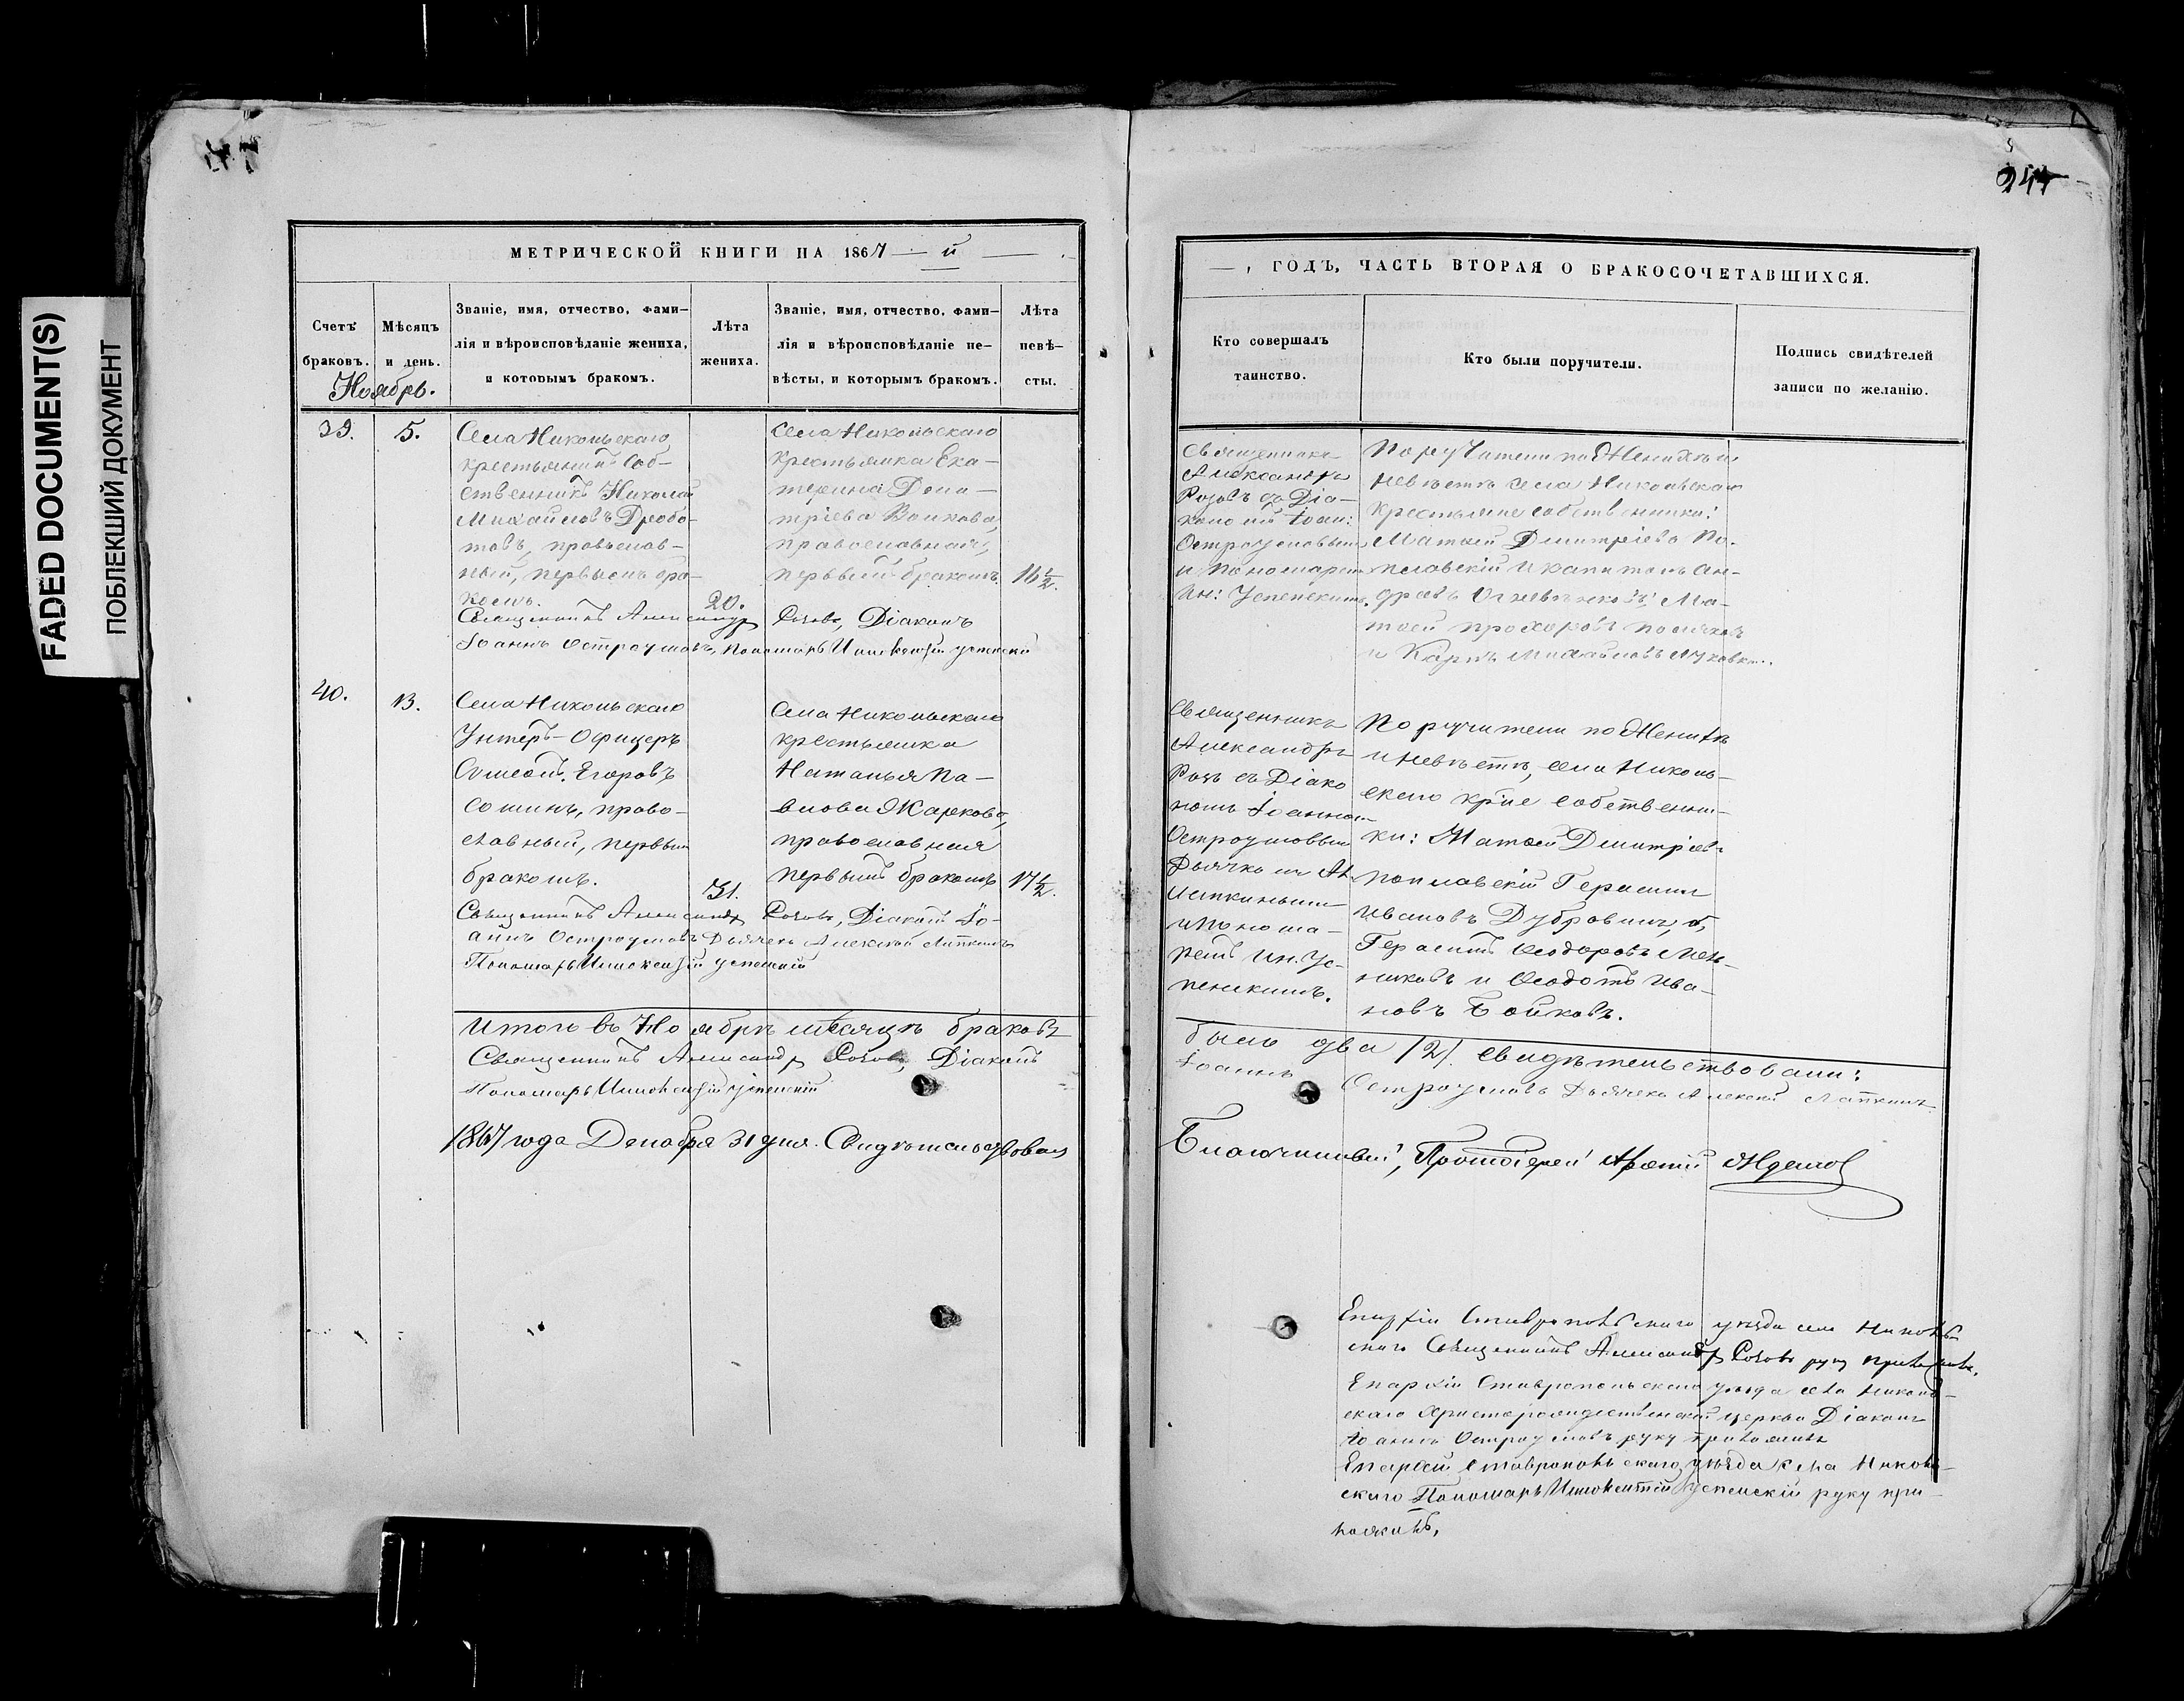 FADED DOCUMENT(S)
ПОБЛЕКШИЙ ДОКУМЕНТ
МЕТРИЧЕСКОЙ КНИГИ НА 1867 — й —
Счетъ браковъ.
Мѣсяцъ и день.
Званіе, имя, отчество, фами-
лія и вѣроисповѣданіе жениха,
и которымъ бракомъ.
Лѣта
жениха.
Званіе, имя, отчество, фами-
лія и вѣроисповѣданіе не-
вѣсты, и которымъ бракомъ.
Лѣта
невѣ-
сты.
Ноябрь.
39.
5.
Села Никольскаго
крестьянинъ соб-
ственникъ Николай
Михайловъ Дробо-
товъ, православ-
ный, первымъ бра-
комъ.
20.
Села Никольскаго
крестьянка Ека-
терина Дими-
тріева Волкова,
православная,
первымъ бракомъ.
16 1/2.
Священникъ Александръ Розовъ, Діаконъ
Іоаннъ Остроумовъ, Пономарь Иннокентій Успенскій
40.
13.
Села Никольскаго
Унтеръ-Офицеръ
Егоровъ
Сошинъ, право-
славный, первымъ
бракомъ.
31.
Села Никольскаго
крестьянка
Наталья Па-
влова Жаркова,
православная
первымъ бракомъ
17 1/2.
Священникъ Александръ Розовъ, Діаконъ Іо-
аннъ Остроумовъ Дьячекъ Алексѣй Лапкинъ
Пономарь Иннокентій Успенскій
Итого въ Ноябрѣ мѣсяцѣ браковъ
Священникъ Александръ Розовъ, Діаконъ
Пономарь Иннокентій Успенскій
1867 года Декабря 31 дня. Свидѣтельствовалъ
—, ГОДЪ, ЧАСТЬ ВТОРАЯ О БРАКОСОЧЕТАВШИХСЯ.
Кто совершалъ
таинство.
Кто были поручители.
Подпись свидѣтелей
записи по желанію.
Священникъ
Александръ
Розовъ съ Діа-
кономъ Іоан:
Остроумовымъ
и Пономаремъ
Ин: Успенскимъ.
Поручители по Женихѣ и
невѣстѣ села Никольскаго
крестьяне собственники:
Матѳей Димитріевъ По-
плавскій и Капитонъ Ан-
дреевъ Ма-
тѳей Прохоровъ Поляковъ
и Карпъ Михайловъ
Священникъ
Александръ
Розъ съ Діако
номъ Іоанномъ
Остроумовымъ
Дьячкомъ Ал.
Лапкинымъ
и Понома-
ремъ Ин. Ус-
пенскимъ.
Поручители по Женихѣ
и невѣстѣ, села Николь-
скаго кр˜не собственни-
ки: Матѳей Димитріевъ
Поплавскій Герасимъ
Ивановъ Дубровинъ,
Герасимъ Ѳеодоровъ Мен-
никовъ и Ѳеодотъ Ива-
новъ Бойковъ.
было два /2/. Свидѣтельствовали:
Іоаннъ Остроумовъ Дьячекъ Алексѣй Лапкинъ
Благочинный, Протоіерей
Епархіи Ставропольскаго уѣзда села Николь-
скаго Священникъ Александръ Розовъ руку приложилъ.
Епархіи Ставропольскаго уѣзда села Николь-
скаго Христорождественской церкви Діаконъ
Іоаннъ Остроумовъ руку приложилъ
Епархіи Ставропольскаго уѣзда села Николь-
скаго Пономарь Иннокентій Успенскій руку при-
ложилъ,